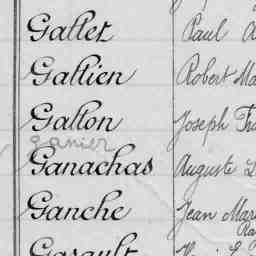 Gallet Paul
Gallien Robert Ma
Galton Joseph Fra
ganier
Ganachas Auguste L
Ganche Jean Mar
Gasault